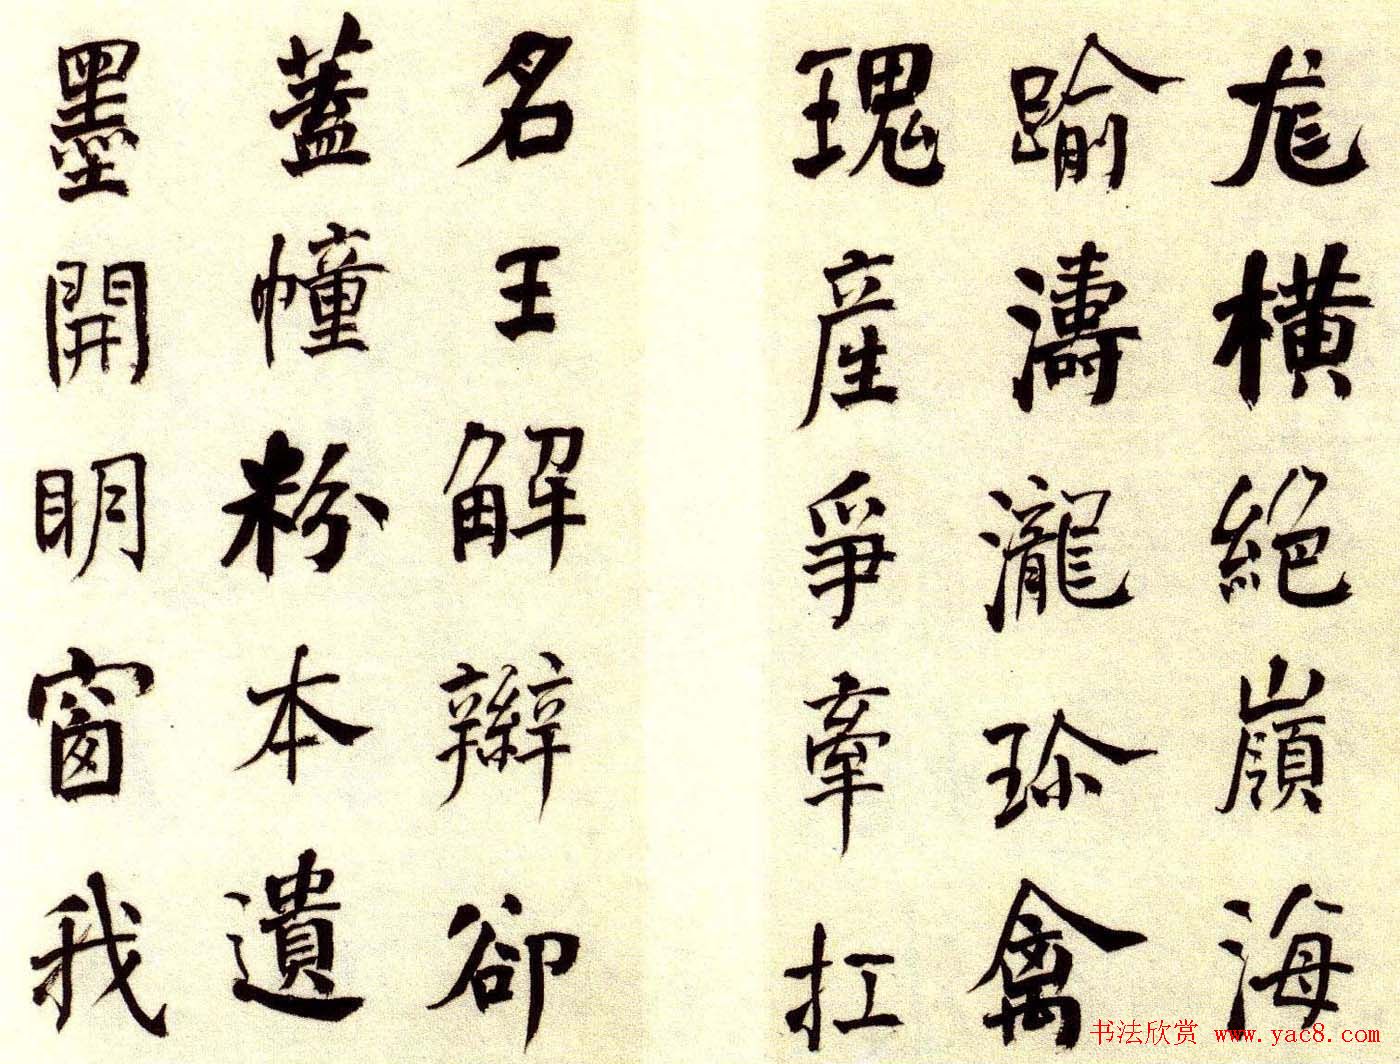 尨横絕嶺海
踰濤瀧珎禽
瑰産爭牽扛
名王解辮卻
蓋幢粉本遺
墨開明窗我
书法欣赏 www.yac8.com